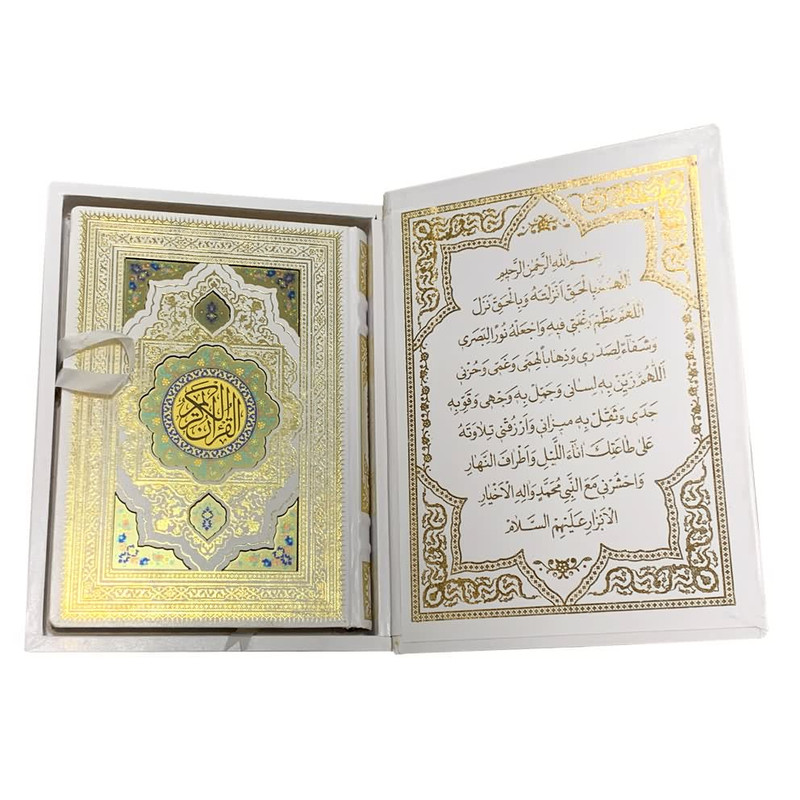 القرآن الكريم
بسم الله الرحمن الرحيم
اَللّهُمَّ بِالْحَقِّ اَنْزَلْتَهُ وَبِالْحَقِّ نَزَلَ
اَللّهُمَّ عَظِّمْ رَغْبَتي فيهِ وَاجْعَلْهُ نُورًا لِبَصَري
وَشِفاءً لِصَدْري وَذِهابًا لِهَمّي وَغَمّي وَحُزْني
اَللّهُمَّ زَيِّنْ بِهِ لِساني وَجَمِّلْ بِهِ وَجْهي وَقَوِّ بِهِ
جَسَدي وَثَقِّلْ بِهِ ميزاني وَارْزُقْني تِلاوَتَهُ
عَلى طاعَتِكَ اناءَ اللَّيْلِ وَاَطْرافَ النَّهارِ
وَاحْشُرْني مَعَ النَّبِيِّ مُحَمَّدٍ وَالِهِ الْاَخْيارِ
الْاَبْرارِ عَلَيْهِمُ السَّلامُ